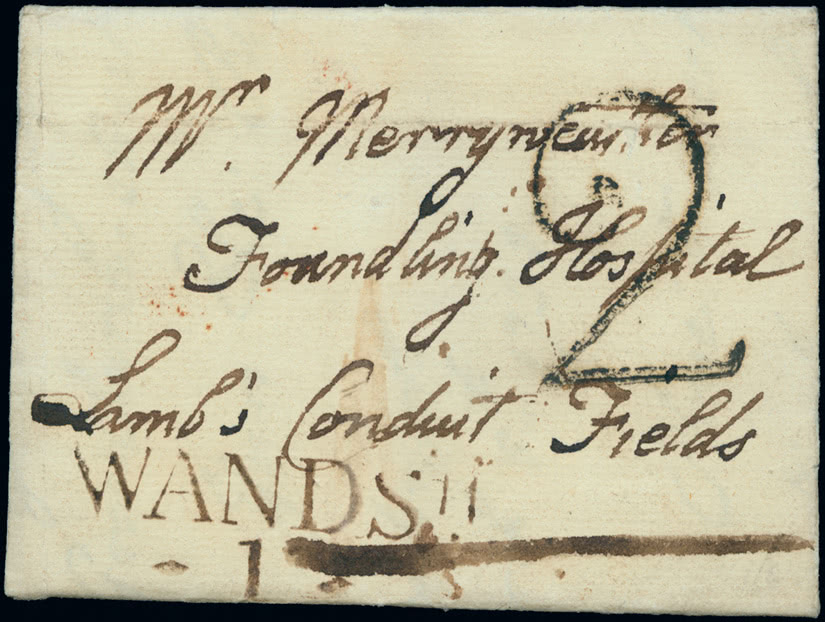 Mr. Merryweather
Foundling Hospital
Lamb's Conduit Fields
2
WANDSH
1